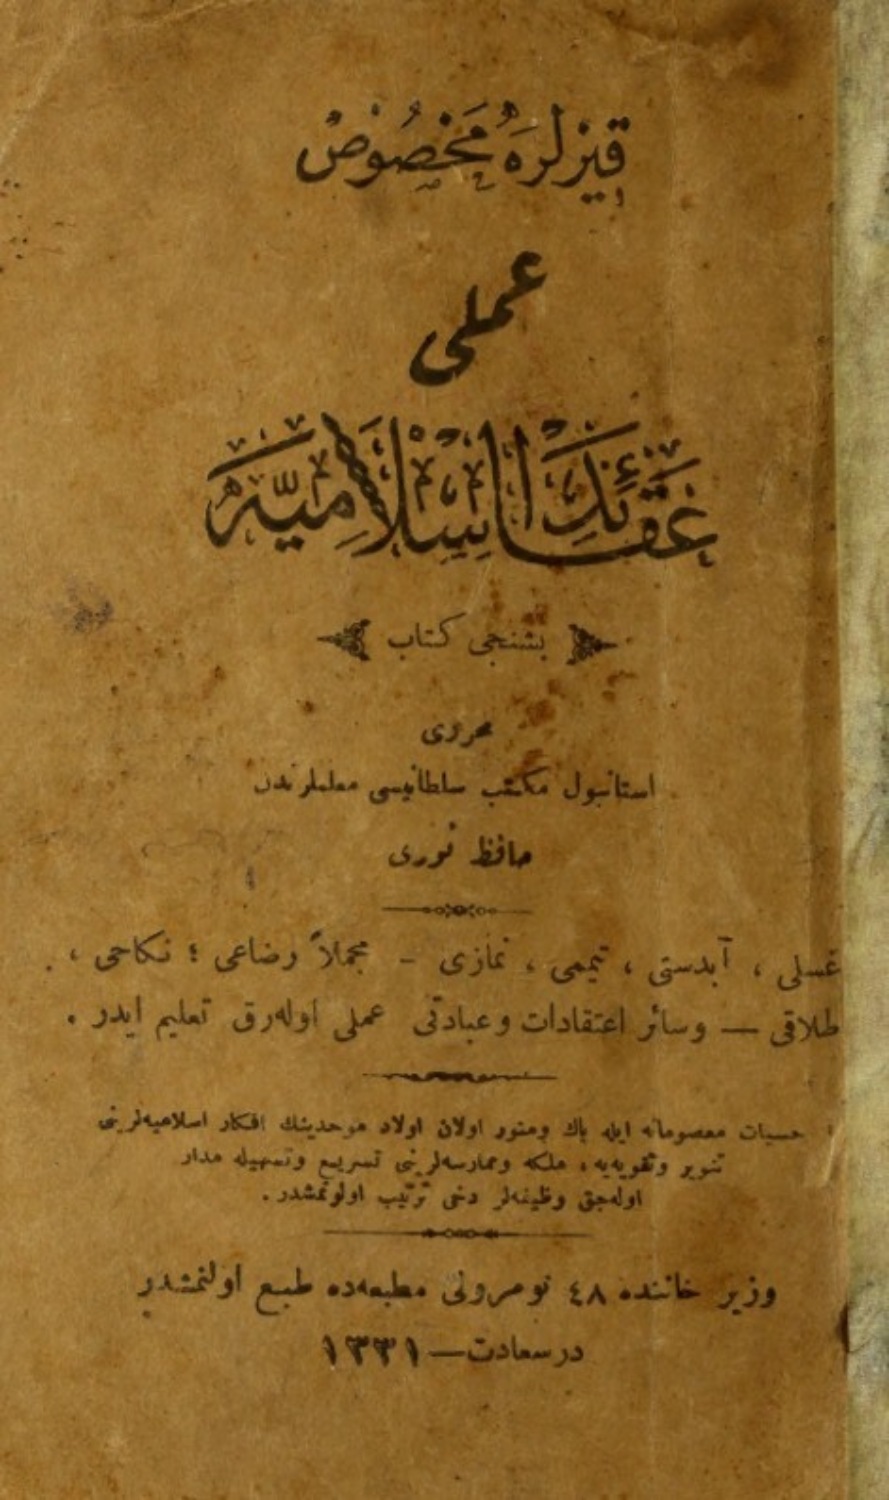 قیزلره مخصوص
عملی
عقائد اسلامیه
بشنجی کتاب
محرری
استانبول مکتب سلطانیسی معلملرندن
حافظ نوری
غسلی ، آبدستی ، تیممی ، نمازی – مجملاً رضاعی ؛ نکاحی ،
طلاقی — وسائر اعتقادات وعبادتی عملی اوله‌رق تعلیم ایدر .
حسیات معصومانه ایله پاك ومنور اولان اولاد موحدینك افکار اسلامیه‌لرینی
تنویر وتقویه‌یه ، ملکه وممارسه‌لرینی تسریع وتسهیله مدار
اوله‌جق وظیفه‌لر دخی ترتیب اولونمشدر .
وزیر خاننده ٤٨ نومرولی مطبعه‌ده طبع اولنمشدر
درسعادت — ١٣٣١